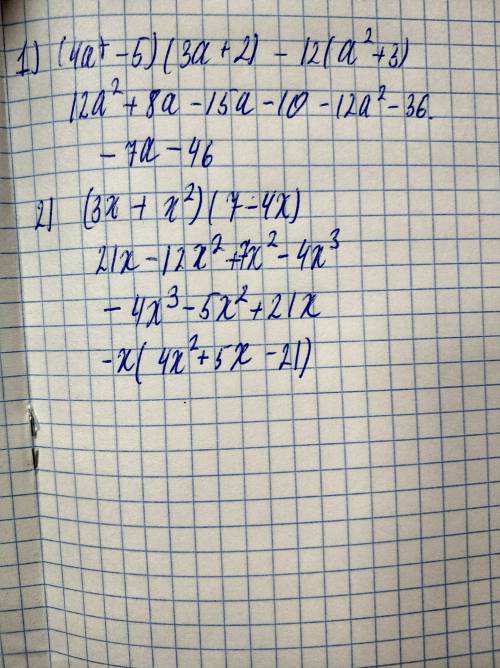 1) (4a - 5)(3a + 2) - 12(a² + 3)
12a² + 8a - 15a - 10 - 12a² - 36.
- 7a - 46
2) (3x + x²)(7 - 4x)
21x - 12x² + 7x² - 4x³
- 4x³ - 5x² + 21x
- x(4x² + 5x - 21)